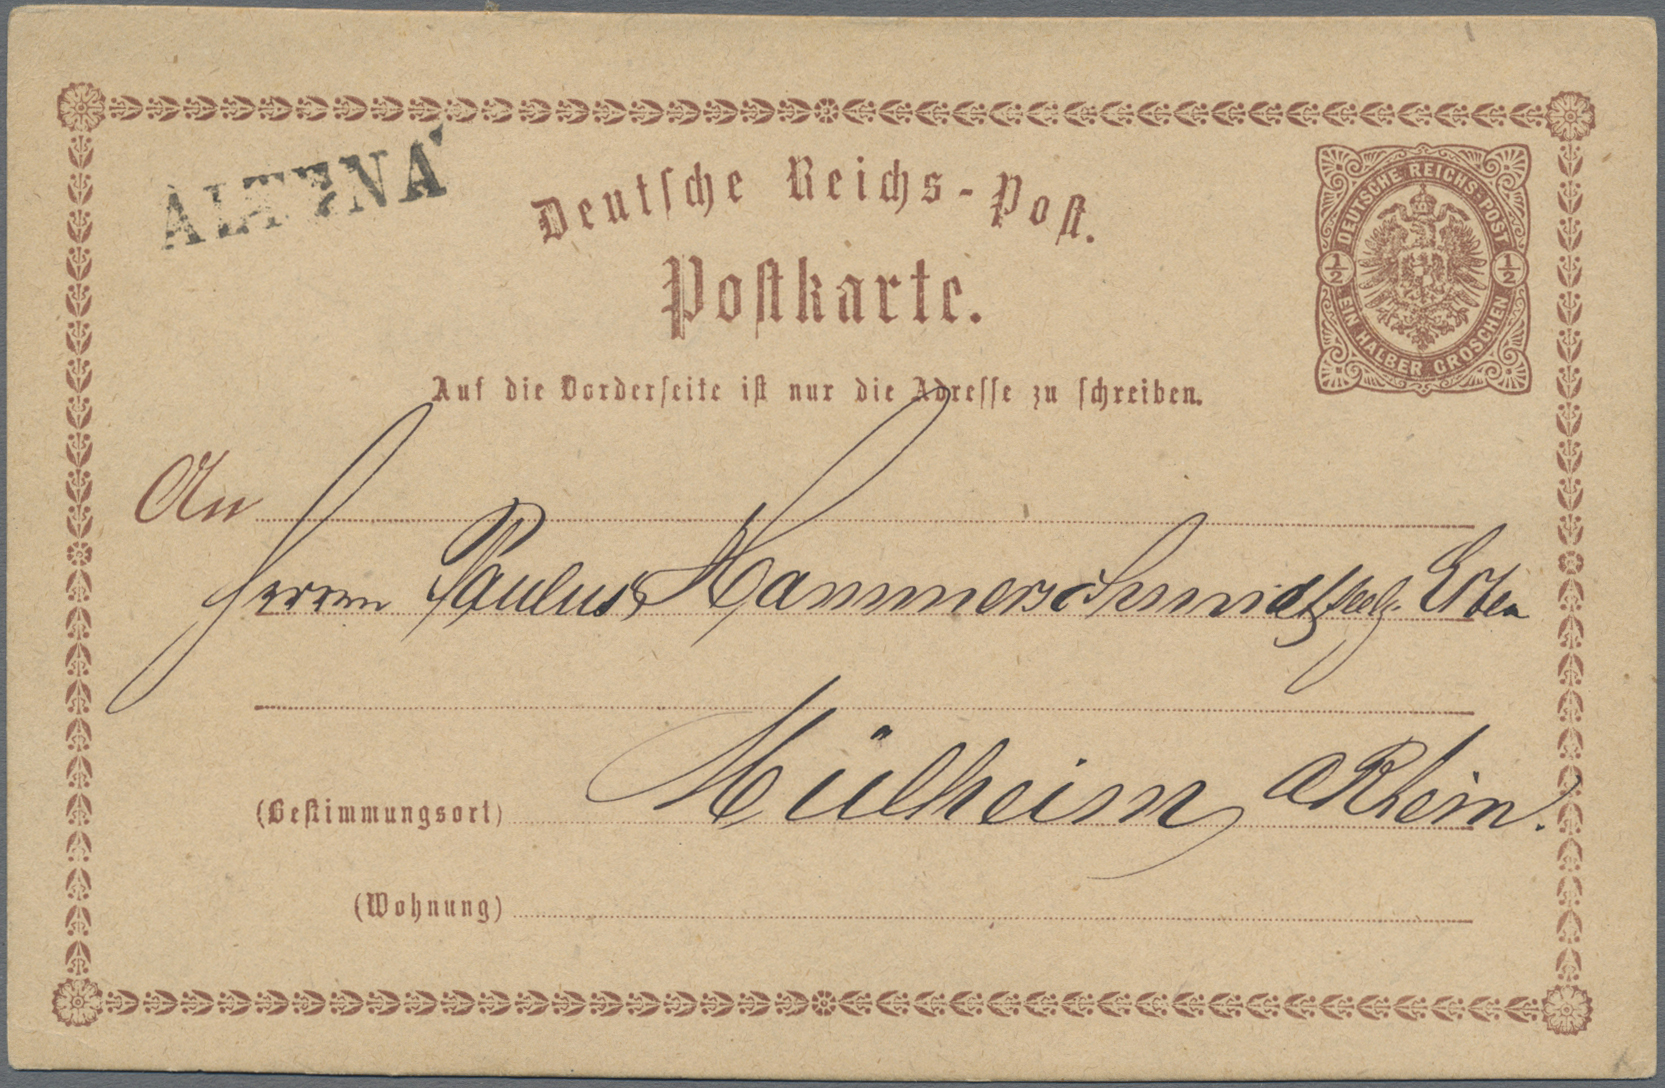 ALTENA
Deutsche Reichs-Post.
Postkarte.
DEUTSCHE REICHS-POST
½ ½
EIN HALBER GROSCHEN
Auf die Vorderseite ist nur die Adresse zu schreiben.
An
Herren Paulus Hammerschmidt seel. Erben
Mülheim a Rhein.
(Bestimmungsort)
(Wohnung)